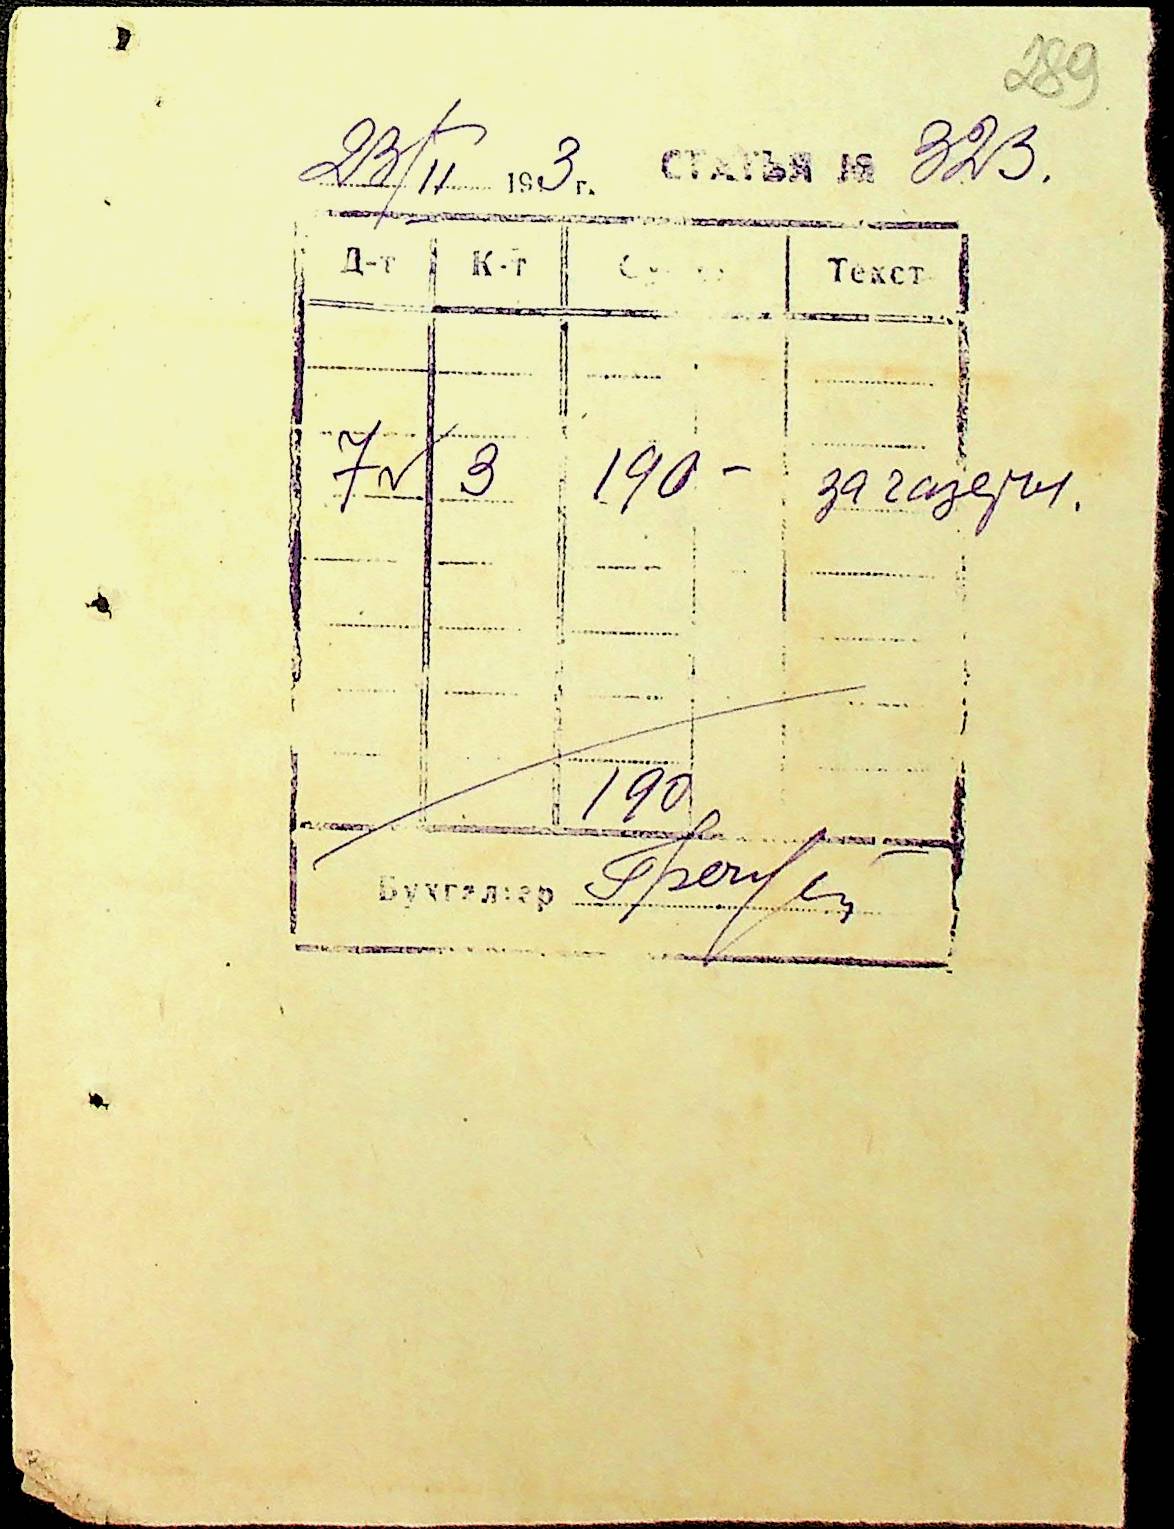 289
23/II 1943 г. СТАТЬЯ № 323.
Д-т К-т Сумма Текст
7 3 190 - за газеты.
190
Бухгалтер